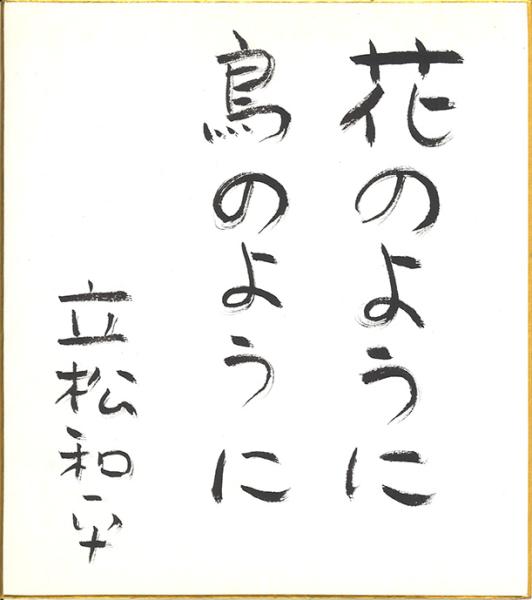 花のように
鳥のように
立松和平